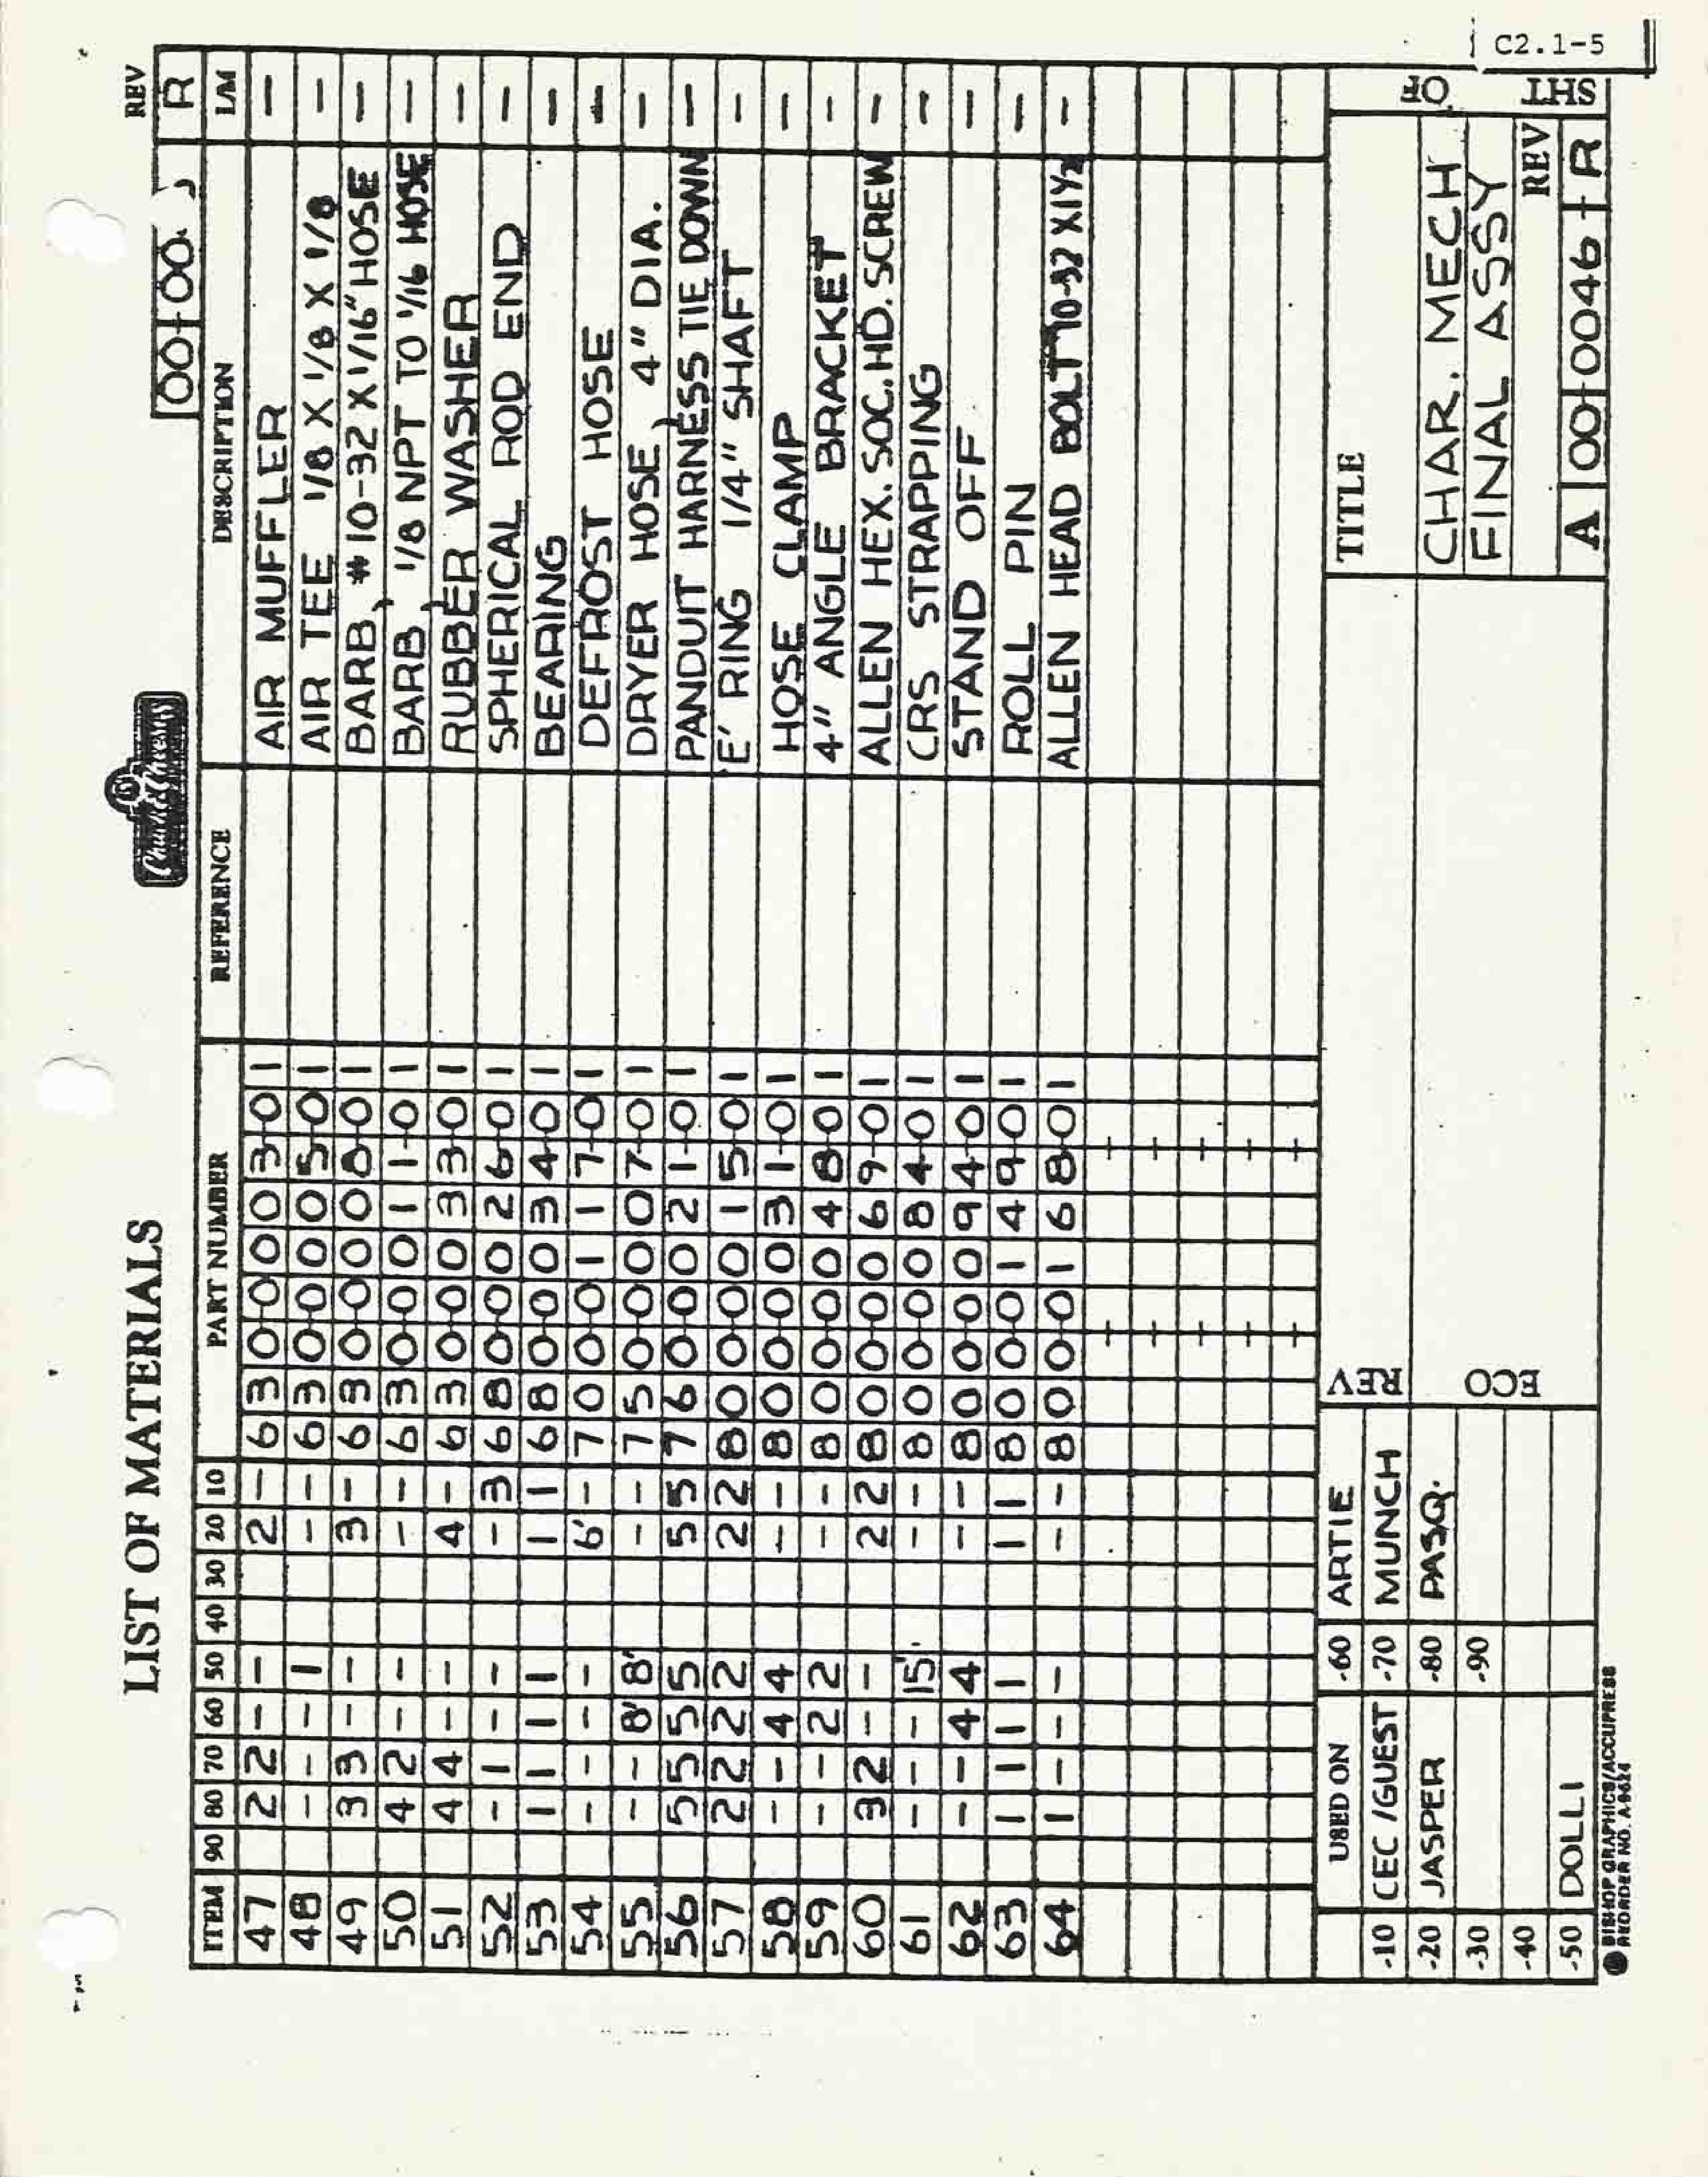 C2.1-5
LIST OF MATERIALS
Chuck E. Cheese's
REV
00 00 R
ITEM 90 80 70 60 50 40 30 20 10 PART NUMBER REFERENCE DESCRIPTION L/M
47 2 2 - - 2 - 63 0-0 0 0 3-0 1 AIR MUFFLER -
48 - - - 1 - - 63 0-0 0 0 5-0 1 AIR TEE 1/8 X 1/8 X 1/8 -
49 3 3 - - 3 - 63 0-0 0 0 8-0 1 BARB, #10-32 X 1/16" HOSE -
50 4 2 - - - - 63 0-0 0 1 1-0 1 BARB, 1/8 NPT TO 1/16 HOSE -
51 4 4 - - 4 - 63 0-0 0 3 3-0 1 RUBBER WASHER -
52 - 1 - - - 3 68 0-0 0 2 6-0 1 SPHERICAL ROD END -
53 1 1 1 1 1 1 68 0-0 0 3 4-0 1 BEARING -
54 - - - - 6' - 70 0-0 1 1 7-0 1 DEFROST HOSE -
55 - - 8' 8' - - 75 0-0 0 0 7-0 1 DRYER HOSE, 4" DIA. -
56 5 5 5 5 5 5 76 0-0 0 2 1-0 1 PANDUIT HARNESS TIE DOWN -
57 2 2 2 2 2 2 80 0-0 0 1 5-0 1 'E' RING 1/4" SHAFT -
58 - - 4 4 - - 80 0-0 0 3 1-0 1 HOSE CLAMP -
59 - - 2 2 - - 80 0-0 0 4 8-0 1 4" ANGLE BRACKET -
60 3 2 - - 2 2 80 0-0 0 6 9-0 1 ALLEN HEX. SOC. HD. SCREW -
61 - - - 15' - - 80 0-0 0 8 4-0 1 CRS STRAPPING -
62 - - 4 4 - - 80 0-0 0 9 4-0 1 STAND OFF -
63 1 1 1 1 1 1 80 0-0 1 4 9-0 1 ROLL PIN -
64 1 - - - - - 80 0-0 1 6 8-0 1 ALLEN HEAD BOLT 10-32 X 1 1/2 -
USED ON
-10 CEC / GUEST
-20 JASPER
-30
-40
-50 DOLLI
-60 ARTIE
-70 MUNCH
-80 PASQ.
-90
REV
ECO
TITLE
CHAR. MECH
FINAL ASSY
REV
A 00 0046 R
SHT
OF
BISHOP GRAPHICS/ACCUPRESS
REORDER NO. A-9624